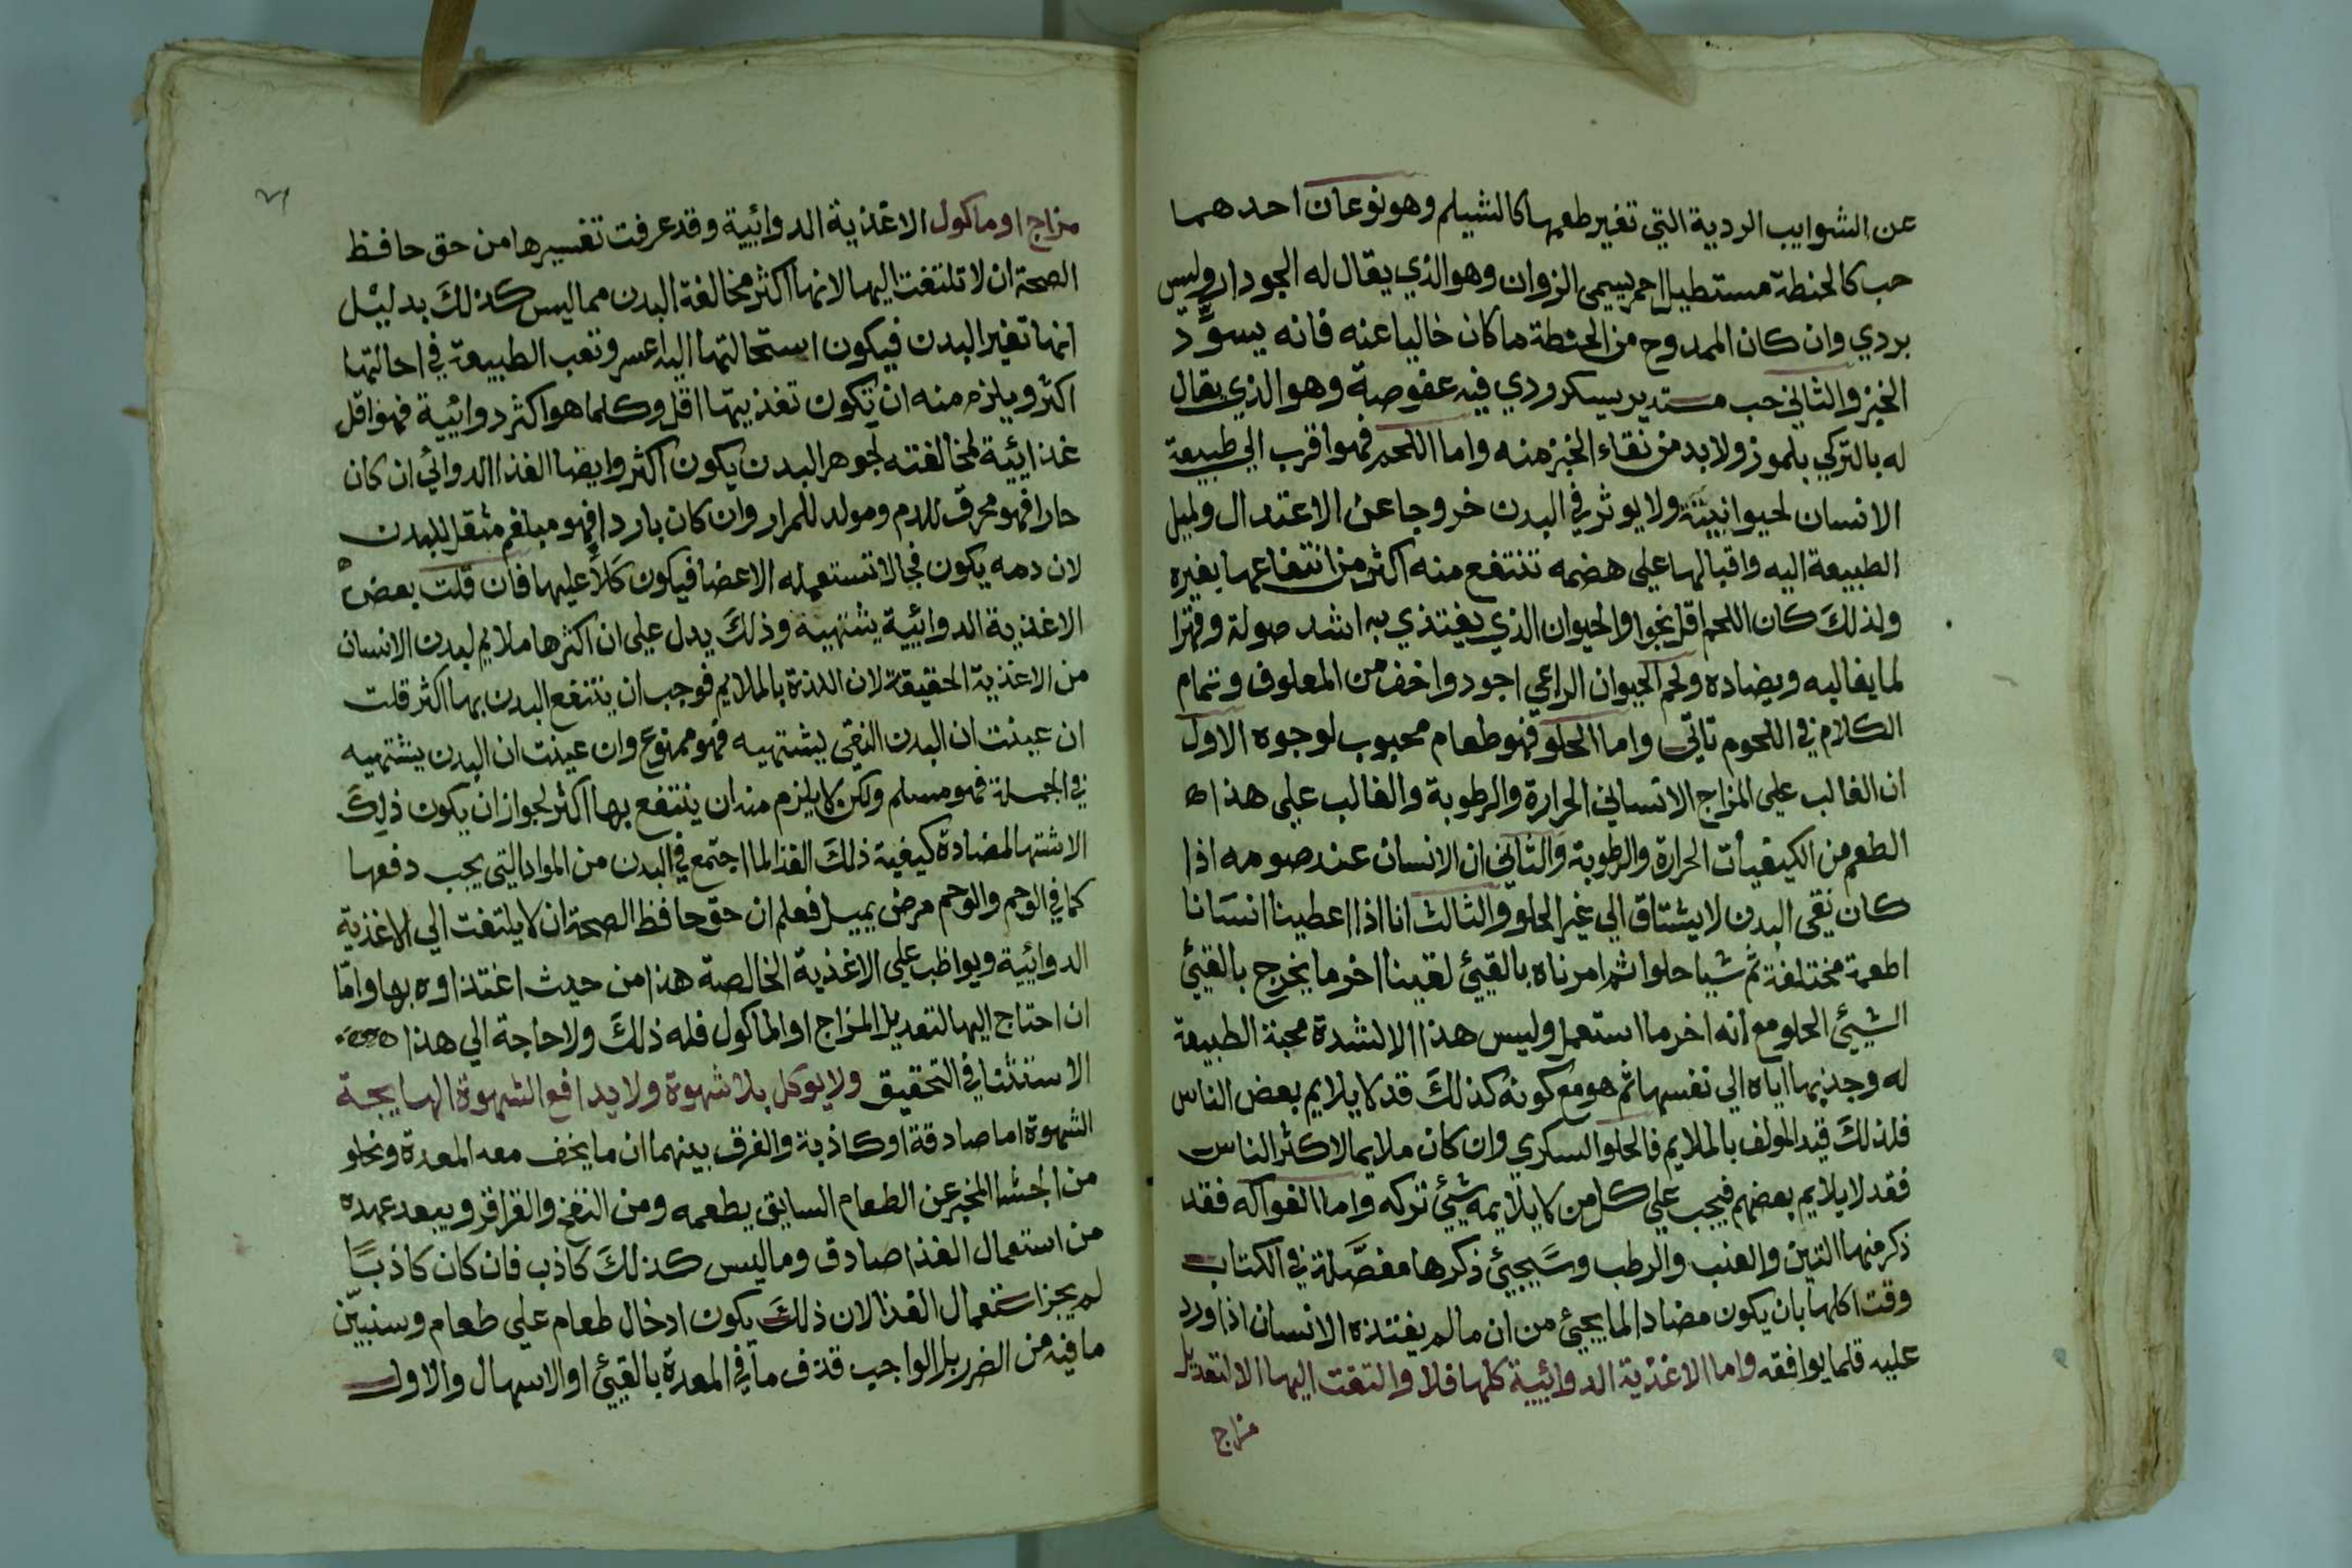 عن الشوايب الردية التي تغير طعمها كالشيلم وهو نوعان احدهما
حب كالحنطة مستطيل احمر يسمى الزوان وهو الذي يقال له الجودار وليس
بردي وان كان الممدوح من الحنطة ما كان خاليا عنه فانه يسوِّد
الخبز والثاني حب مستدير يسكر ودي فيه عفوصة وهو الذي يقال
له بالتركي بلموز ولا بد من نقاء الخبز منه واما اللحم فهو اقرب الي طبيعة
الانسان لحيوانيته ولا يوثر في البدن خروجا عن الاعتدال ولميل
الطبيعة اليه واقبالها علي هضمه تنتفع منه اكثر من انتفاعها بغيره
ولذلك كان اللحم اقل نجوا والحيوان الذي يغتذي به اشد صولة وقهرا
لما يغالبه ويضاده ولحم الحيوان الراعي اجود واخف من المعلوف وتمام
الكلام في اللحوم تاتي واما الحلو فهو طعام محبوب لوجوه الاول
ان الغالب علي المزاج الانساني الحرارة والرطوبة والغالب علي هذا
الطعم من الكيفيات الحرارة والرطوبة والثاني ان الانسان عند صومه اذا
كان نقي البدن لا يشتاق الي غير الحلو والثالث انا اذا اعطينا انسانا
اطعمة مختلفة ثم شيا حلوا ثم امرناه بالقيئ لقينا اخر ما يخرج بالقيئ
الشيئ الحلو مع انه اخر ما استعمل وليس هذا الا لشدة محبة الطبيعة
له وجذبها اياه الي نفسها ثم هو مع كونه كذلك قد لا يلايم بعض الناس
فلذلك قيد المولف بالملايم فالحلو السكري وان كان ملايما لاكثر الناس
فقد لا يلايم بعضهم فيجب علي كل من لا يلايمه شيئ تركه واما الفواكه فقد
ذكر منها التين والعنب والرطب وسَيجيئ ذكرها مفصَّلة في الكتاب
وقت اكلها بان يكون مضادا لما يجيئ من ان ما لم يغتذه الانسان اذا ورد
عليه قلما يوافقه واما الاغذية الدوائية كلها فلا والتفت اليها الا لتعديل
مزاج
مزاج او ماكول الاغذية الدوائية وقد عرفت تفسيرها من حق حافظ
الصحة ان لا تلتفت اليها لانها اكثر مخالفة البدن مما ليس كذلك بدليل
انها تغير البدن فيكون استحالتها اليه اعسر وتعب الطبيعة في احالتها
اكثر ويلزم منه ان تكون تغذيتها اقل وكلما هو اكثر دوائية فهو اقل
غذائية لمخالفته لجوهر البدن يكون اكثر وايضا الغذا الدوائي ان كان
حارا فهو محرق للدم ومولد للمرار وان كان باردا فهو مبلغم مثقل للبدن
لان دمه يكون فجا لا تستعمله الاعضا فيكون كَلاًّ عليها فان قلت بعض
الاغذية الدوائية يشتهيه وذلك يدل علي ان اكثرها ملايم لبدن الانسان
من الاغذية الحقيقة لان اللذة بالملايم فوجب ان ينتفع البدن بها اكثر قلت
ان عينت ان البدن النقي يشتهيه فهو ممنوع وان عينت ان البدن يشتهيه
في الجملة فهو مسلم ولكن لا يلزم منه ان ينتفع بها اكثر لجواز ان يكون ذلك
الاشتها لمضادة كيفية ذلك الغذا لما اجتمع في البدن من المواد التي يجب دفعها
كما في الوحم والوحم مرض يميل فعلم ان حق حافظ الصحة ان لا يلتفت الي الاغذية
الدوائية ويواظب علي الاغذية الخالصة هذا من حيث اغتذاوه بها واما
ان احتاج اليها لتعديل المزاج او الماكول فله ذلك ولا حاجة الي هذا
الاستثنا في التحقيق ولا يوكل بلا شهوة ولا يدافع الشهوة الهايجة
الشهوة اما صادقة او كاذبة والفرق بينهما ان ما يخف معه المعدة وتخلو
من الجشا المخبر عن الطعام السابق بطعمه ومن النفخ والقراقر ويبعد عهده
من استعمال الغذا صادق وما ليس كذلك كاذب فان كان كاذبًا
لم يجز استعمال الغذا لان ذلك يكون ادخال طعام علي طعام وسنبيّن
ما فيه من الضرر بل الواجب قذف ما في المعدة بالقيئ او الاسهال والاول